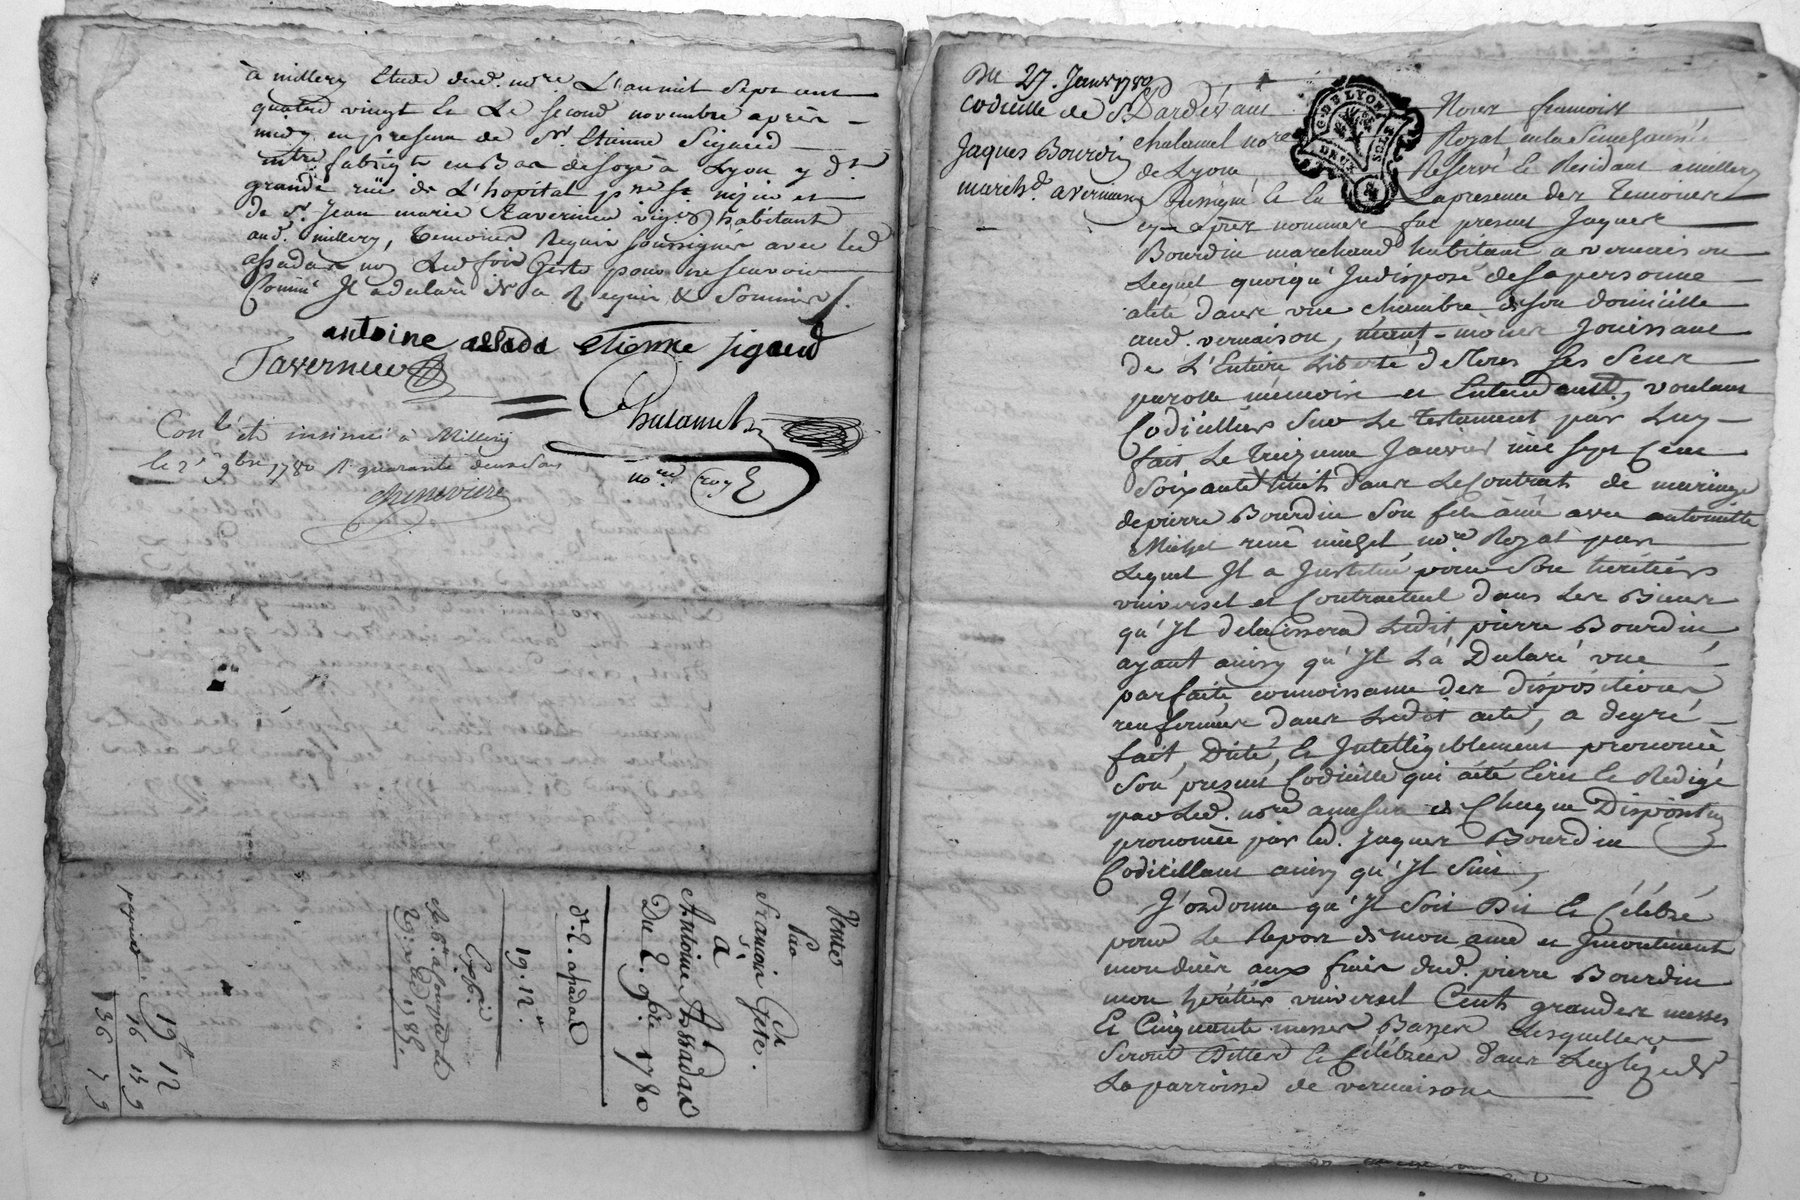 à millery Etude dud. nore. L'an mil sept cent
quatre vingt et Le second novembre après
midy en presence de Sr. Etienne Sigaud
mtre. fabriqt. en Bas de soye à Lyon y dt.
grande rüe de L'hopital psse. St. nizier et
de Sr. Jean marie Tavernier habitant
aud. millery, temoins Requis soussignés avec led
assadas non Led. Gette pour ne scavoir
Comme Il a declaré de ce Requis & sommé
antoine assada etienne sigaud
Taverniere
Chalamel
nore. roy
Conlé. et insinué à Millery
le 2e 9bre 1780 R quarante deux sols
cheneviere
Ventes
Par
françois Gette.
à
Antoine Assadas
Du 2. 9bre 1780
dt. E. assadas
19. 12
Expé.
19 12
16 14 9
Du 27. Janvr 1780
Codicille de Sr.
Jaques Bourdin
marchd. a vernaison
Pardevant Nous francois
chalamel nore. Royal en la Senechaussée
de Lyon, Reservé et Residant a millery
soussigné et en La presence des temoins
cy-après nommés fut present Jaques
Bourdin marchand habitant a vernaison
Lequel quoiqu'Indisposé de sa personne
alité dans une chambre de son domicille
aud. vernaison, neant-moins Jouissant
de L'Entiere Liberté de tous ses sens
parolle mémoire et Entendement, voulant
Codiciller sur Le testament par Luy
fait Le treizieme Janvier mil sept Cent
soixante huit dans Le Contrat de mariage
de pierre Bourdin son fils ainé avec antoinette
Michel reçu michel nore. Royal par
Lequel Il a Institué pour son héritier
universel et Contractuel dans Les Biens
qu'Il delaissera Ledit pierre Bourdin
ayant ainsy qu'Il L'a Declaré une
parfaite connoissance des dispositions
renfermées dans Ledit acte, a de gré
fait, Dicté, et Intelligiblement prononcé
son present Codicille qui a été Ecrit et Redigé
par Led. nore. a mesure de Chaque Disposition
prononcée par led. Jaques Bourdin
Codicillant ainsy qu'Il suit,
J'ordonne qu'Il soit Dit et Célébré
pour Le Repos de mon ame et Incontinent
mon décès aux frais dud. pierre Bourdin
mon héritier universel Cent grandes messes
et Cinquante messes Basses Lesquelles
seront Dittes et Célébrées dans L'eglize de
La parroisse de vernaison